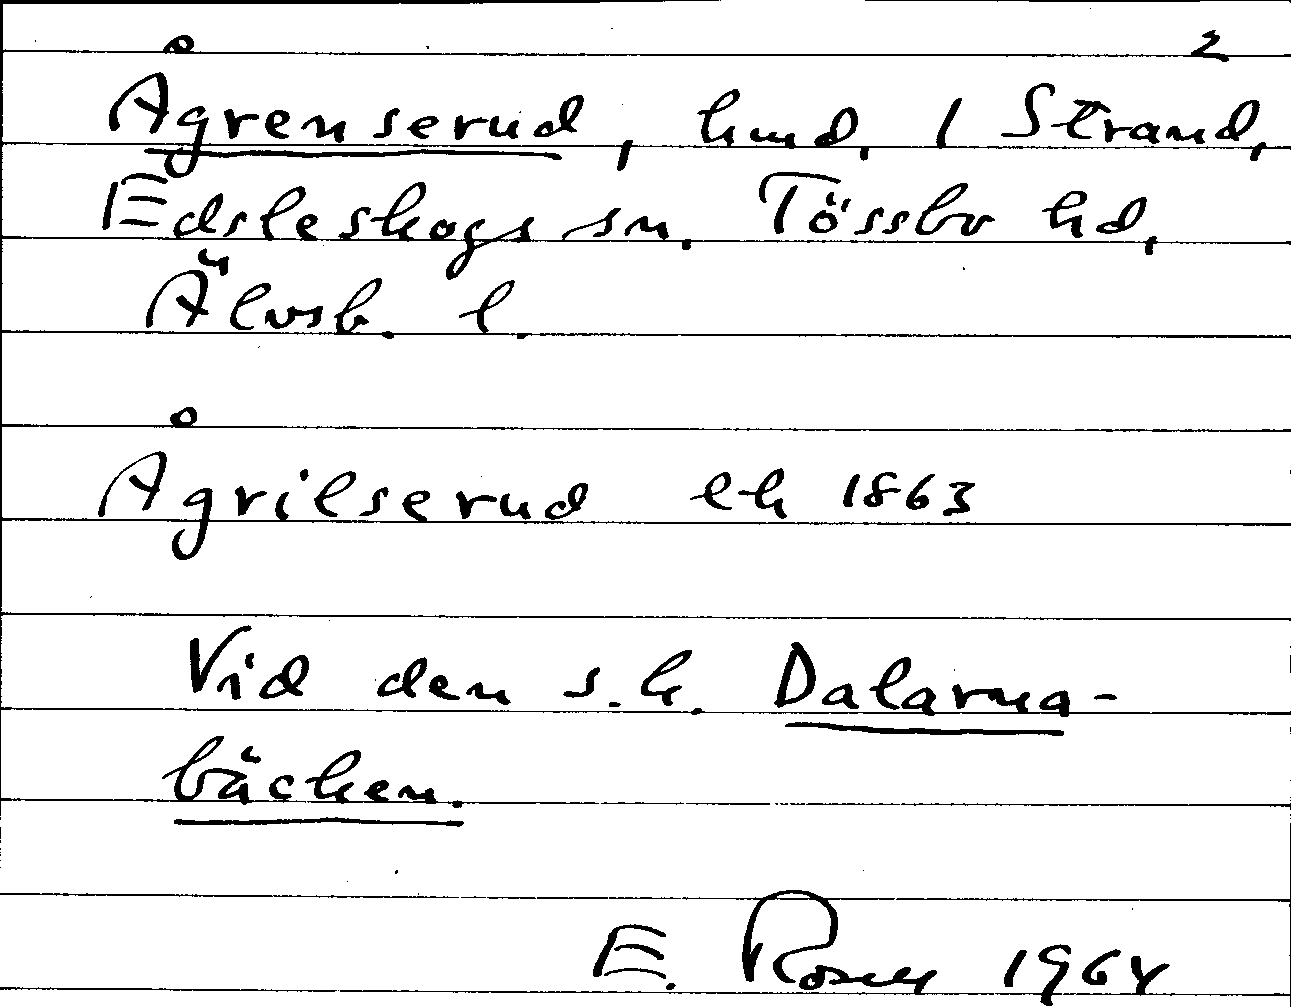 2
Ågrenserud, hmd, 1 Strand,
Edsleskogs sn. Tössbo hd,
Älvsb. l.
Ågrilserud ek 1863
Vid den s.k. Dalarna-
bäcken.
E. Rosell 1964